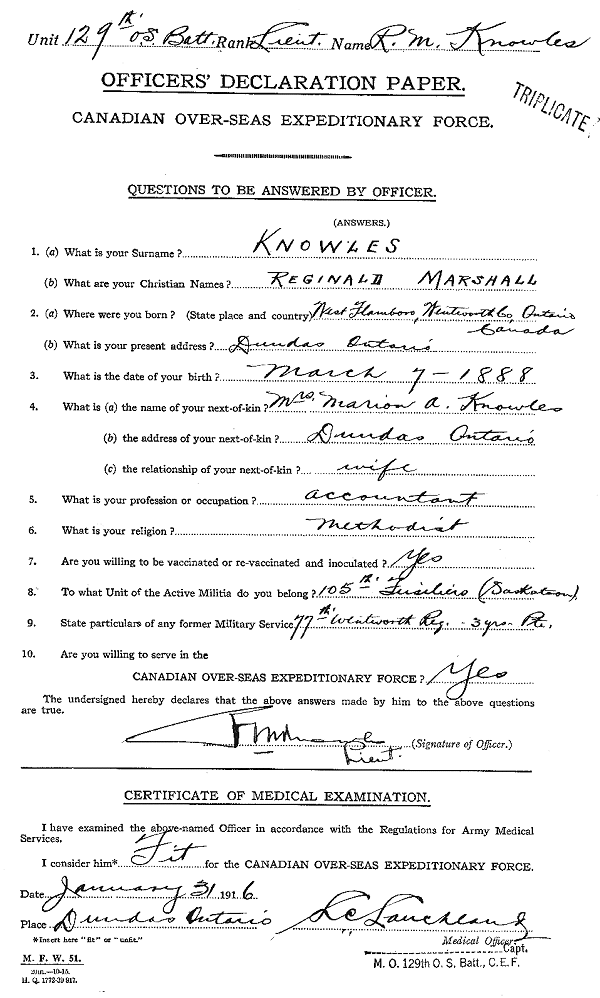 Unit 129th OS Batt. Rank Lieut. Name R. M. Knowles
OFFICERS' DECLARATION PAPER.
TRIPLICATE
CANADIAN OVER-SEAS EXPEDITIONARY FORCE.
QUESTIONS TO BE ANSWERED BY OFFICER.
(ANSWERS.)
1. (a) What is your Surname? KNOWLES
(b) What are your Christian Names? REGINALD MARSHALL
2. (a) Where were you born? (State place and country) West Flamboro, Wentworth Co, Ontario
Canada
(b) What is your present address? Dundas Ontario
3. What is the date of your birth? March 7 - 1888
4. What is (a) the name of your next-of-kin? Mrs. Marion A. Knowles
(b) the address of your next-of-kin? Dundas Ontario
(c) the relationship of your next-of-kin? wife
5. What is your profession or occupation? accountant
6. What is your religion? Methodist
7. Are you willing to be vaccinated or re-vaccinated and inoculated? Yes
8. To what Unit of the Active Militia do you belong? 105th Fusiliers (Saskatoon)
9. State particulars of any former Military Service 77th Wentworth Reg. - 3 yrs - Pte.
10. Are you willing to serve in the
CANADIAN OVER-SEAS EXPEDITIONARY FORCE? Yes
The undersigned hereby declares that the above answers made by him to the above questions
are true.
(Signature of Officer.)
Lieut.
CERTIFICATE OF MEDICAL EXAMINATION.
I have examined the above-named Officer in accordance with the Regulations for Army Medical
Services.
I consider him* Fit for the CANADIAN OVER-SEAS EXPEDITIONARY FORCE.
Date January 31 1916
Place Dundas Ontario
*Insert here "fit" or "unfit."
Medical Officer.
Capt.
M. O. 129th O. S. Batt., C. E. F.
M. F. W. 51.
H. Q. 1772-39 917.